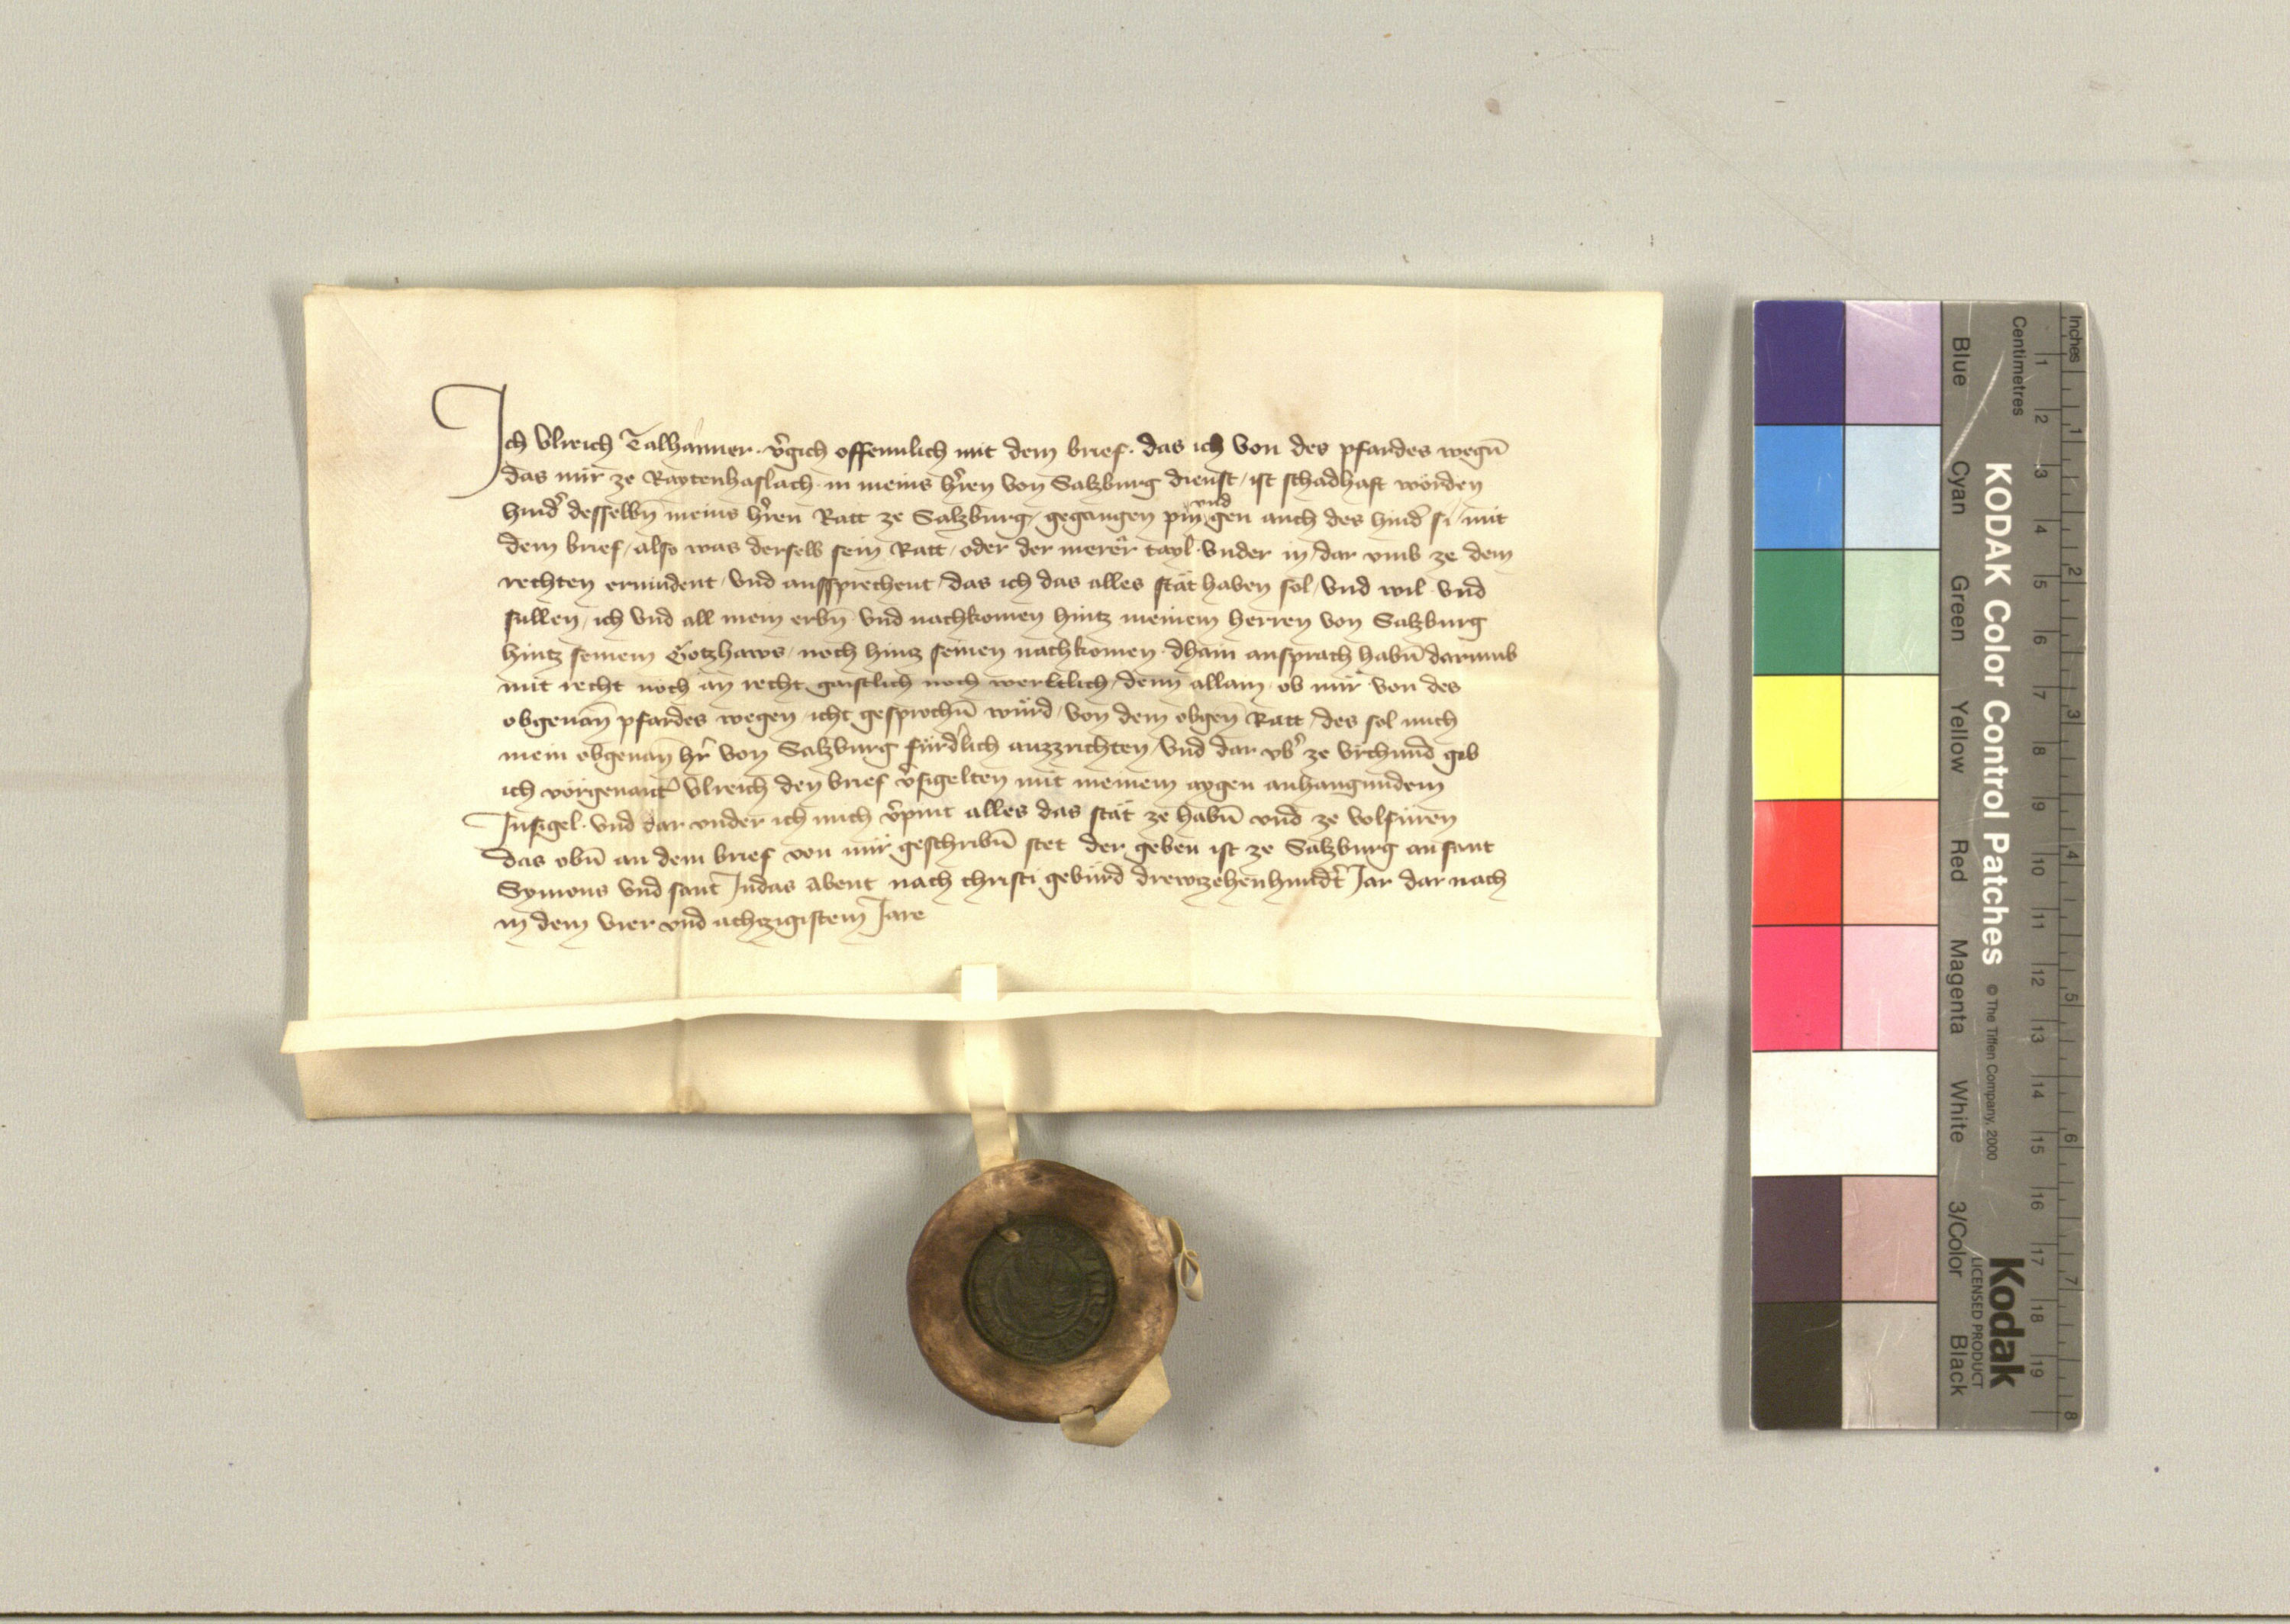 Ich Vlreich Talhaimer v̂gich offennlich mit dem brief das ich von des pfärdes wegn̄
das mir ze Raytenhaslach in meins hr̂ren von Salzburg dienst ist schadhaft worden
hindˀ desselbn̄ meins hr̂ren Ratt ze Salzburg gegangen pin vnd gen auch des hindˀ si mit
dem brief also was derselb sein Ratt oder der merer̂ tayl vnder in dar vmb ze dem
rechten ervindent vnd aussprechent das ich das alles stät haben sol vnd wil vnd
sullen ich vnd all mein erbn̄ vnd nachkomen hintz meinem herren von Salzburg
hintz seinem Gotzhaws noch hintz seinen nachkomen dhain ansprach habn̄ darumb
mit recht noch an recht gaistlich noch werltlich denn allain ob mir von des
obgenan̄ pfärdes wegen icht gesprochn̄ würd von dem obgen̄ Ratt des sol mich
mein obgenan̄ hr̂ von Salzburg fürdˀlich auzzrichten vnd dar vbˀ ze vrchund gib
ich vorgenantˀ Vlreich den brief v̂sigelten mit meinem aygen anhangundem
Insigel vnd dar vnder ich mich v̂pint alles das stät ze habn̄ vnd ze volfüren
das obn̄ an dem brief von mir geschribn̄ stet der geben ist ze Salzburg an sant
Symons vnd sant Judas Abent nach christi gebürd drewzehenhundˀt Jar dar nach
in dem vier vnd achzigistem Jare
KODAK Color Control Patches
© The Tiffen Company, 2000
Kodak
LICENSED PRODUCT
Blue Cyan Green Yellow Red Magenta White 3/Color Black
Centimetres 1 2 3 4 5 6 7 8 9 10 11 12 13 14 15 16 17 18 19
Inches 1 2 3 4 5 6 7 8